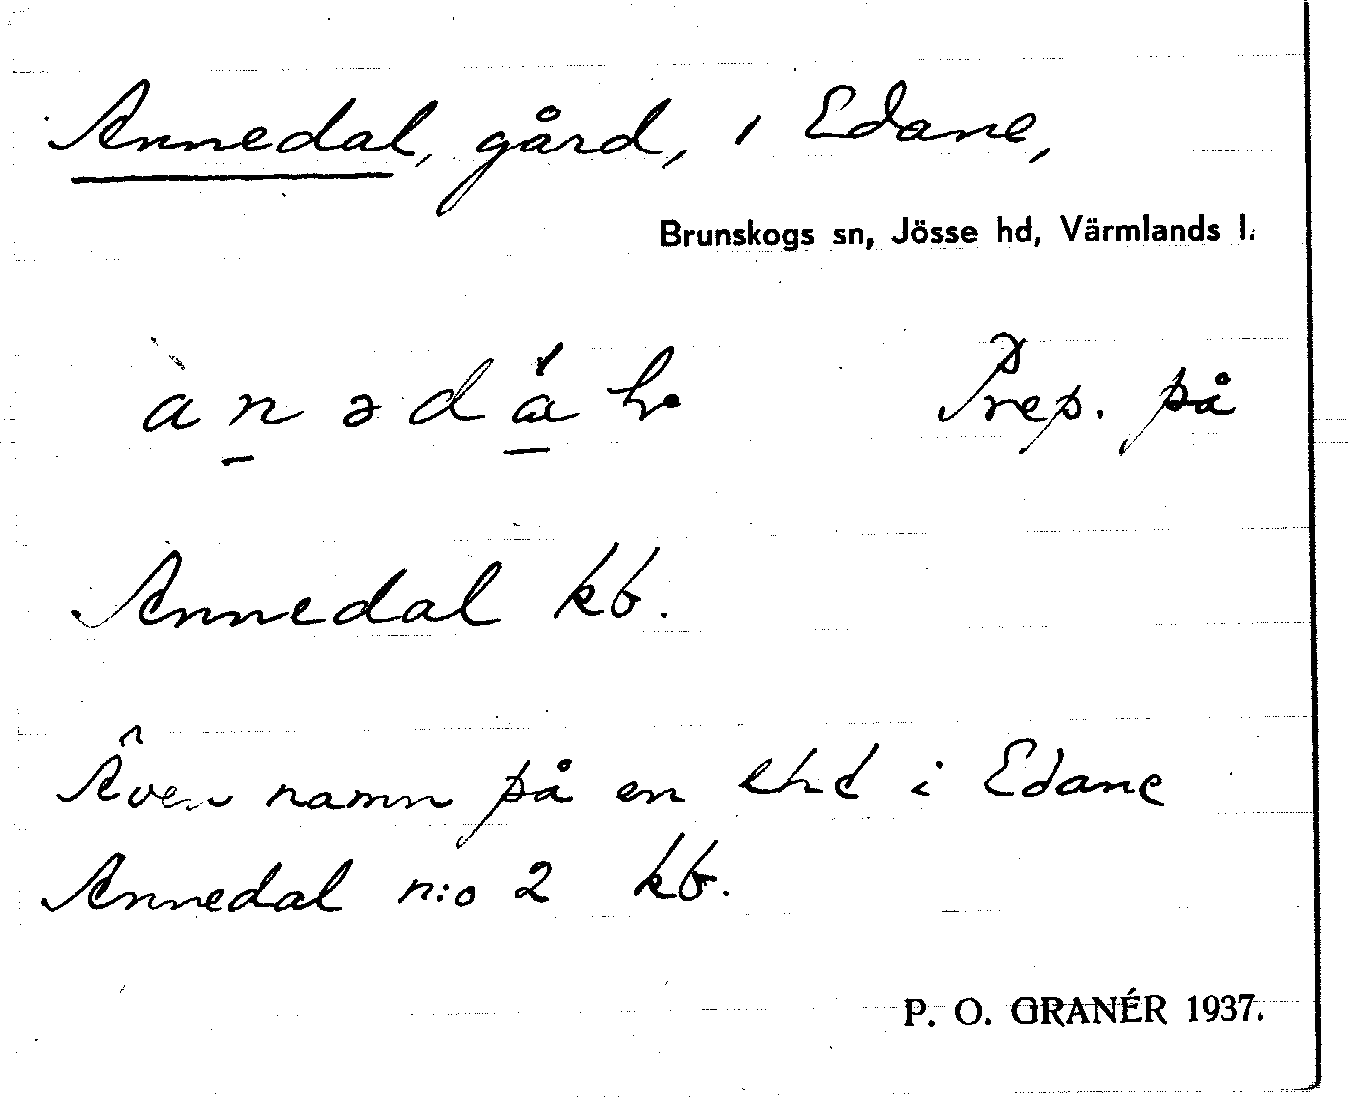 Annedal, gård, i Edane,
Brunskogs sn, Jösse hd, Värmlands l.
Prep. på
Annedal kb.
Även namn på en i Edane
Annedal n:o 2 kb.
P. O. GRANÉR 1937.